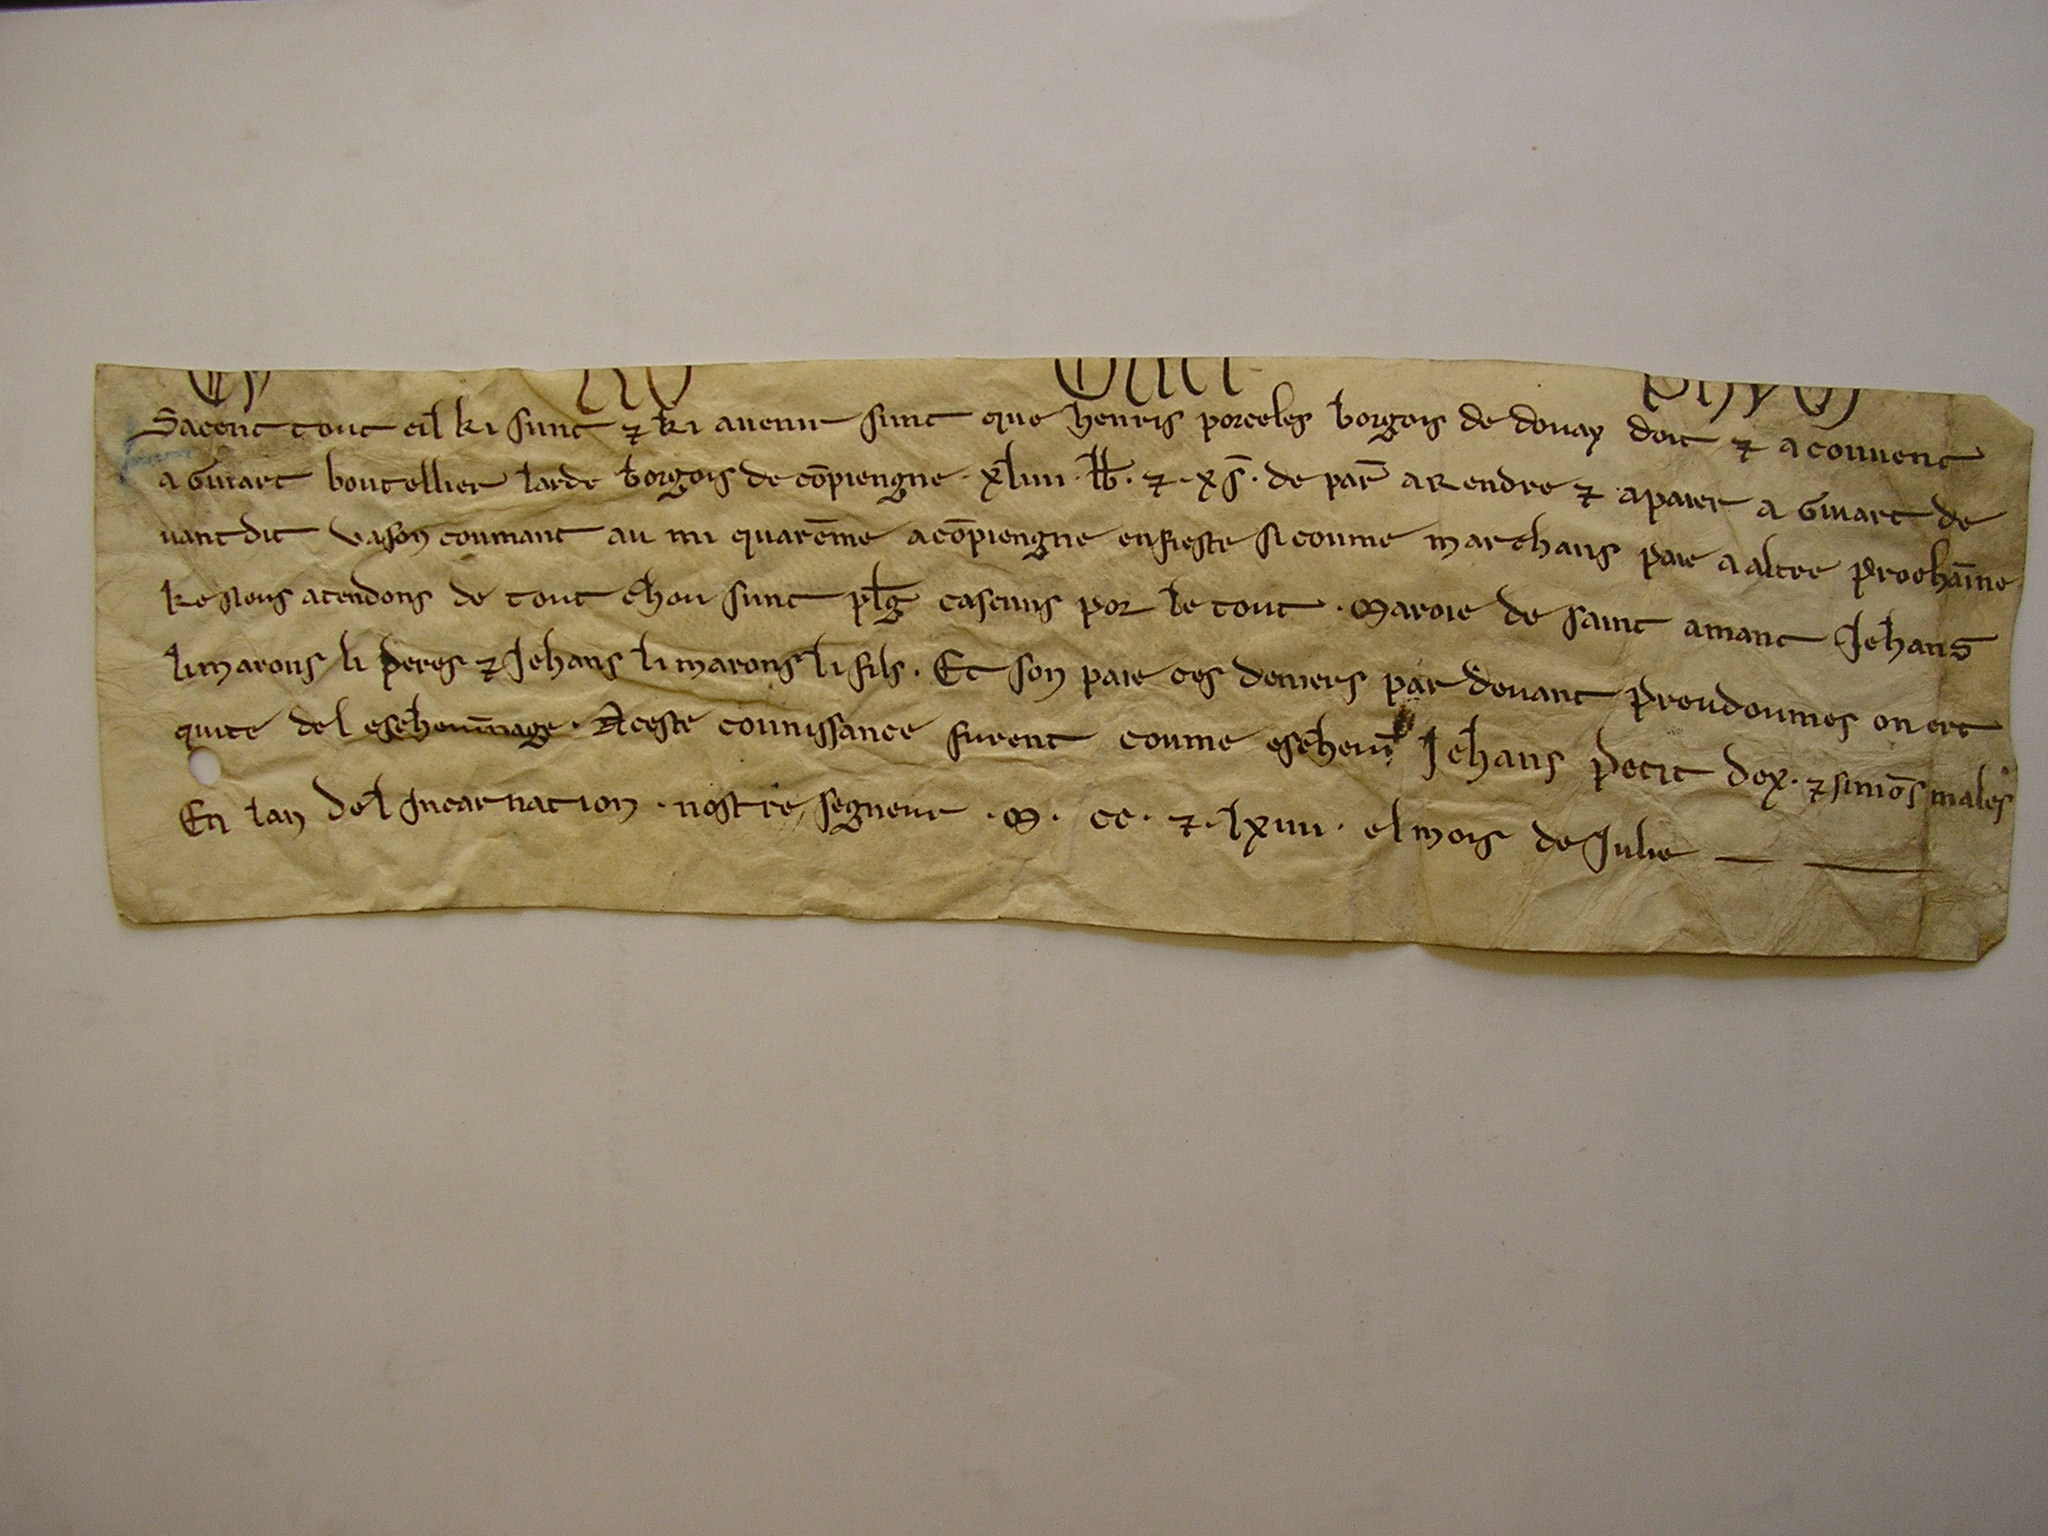 Sacent tout cil ki sunt ⁊ ki auenir sunt que henris porceles borgois de douay doit ⁊ a couuent
a Gviart boutellier larde borgois de cōpiengne · xliiii · lb̄ · ⁊ · x s̄ · de par̄ a Rendre ⁊ a paier a Gviart de
uant dit v a son coumant au mi quarēme a cōpiengne en fieste si coume marchans paie a altre prochāine
ke nous atendons de tout chou sunt pl̄g cascuns por le tout · Maroie de saint amant Jehans
li marons li peres ⁊ Jehans li marons li fils · Et son paie ces deniers par deuant preudoumes on ert
quite del escheuinage · A ceste counissance furent coume escheuī Jehans petit dex · ⁊ simōs malēs
En lan del Incarnation · nostre segneur · M · cc · ⁊ · lxiiii · el mois de Julie